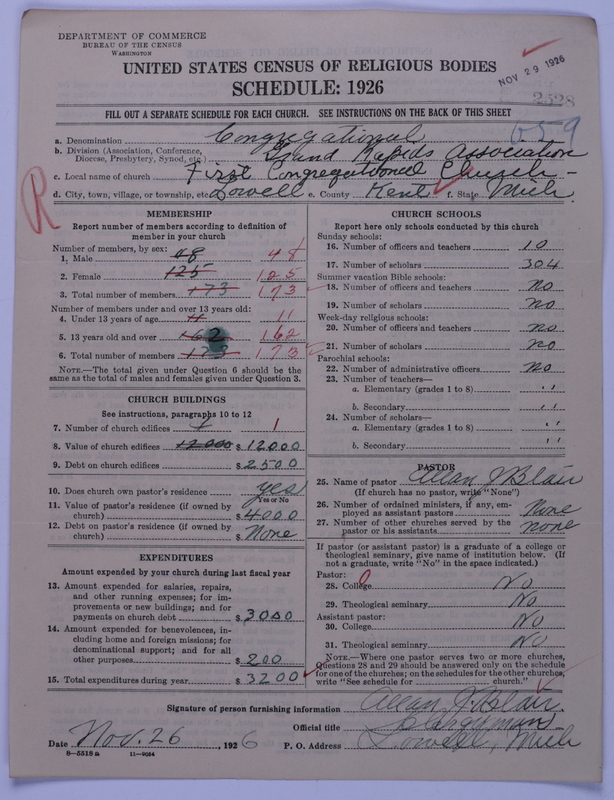 DEPARTMENT OF COMMERCE
BUREAU OF THE CENSUS
WASHINGTON
NOV 29 1926
UNITED STATES CENSUS OF RELIGIOUS BODIES
SCHEDULE: 1926
2528
FILL OUT A SEPARATE SCHEDULE FOR EACH CHURCH. SEE INSTRUCTIONS ON THE BACK OF THIS SHEET
659
a. Denomination Congregational
b. Division (Association, Conference, Diocese, Presbytery, Synod, etc.) Grand Rapids Association
c. Local name of church First Congregational Church
d. City, town, village, or township, etc. Lowell e. County Kent f. State Mich
R
MEMBERSHIP
Report number of members according to definition of
member in your church
Number of members, by sex:
1. Male 48 48
2. Female 125 125
3. Total number of members 173 173
Number of members under and over 13 years old:
4. Under 13 years of age 11 11
5. 13 years old and over 162 162
6. Total number of members 173 173
NOTE.—The total given under Question 6 should be
same as the total of males and females given under Question 3.
CHURCH BUILDINGS
See instructions, paragraphs 10 to 12
7. Number of church edifices 1 1
8. Value of church edifices 12000 $ 12000
9. Debt on church edifices $ 2500
10. Does church own pastor's residence yes
Yes or No
11. Value of pastor's residence (if owned by
church) $ 4000
12. Debt on pastor's residence (if owned by
church) $ None
EXPENDITURES
Amount expended by your church during last fiscal year
13. Amount expended for salaries, repairs,
and other running expenses; for im-
provements or new buildings; and for
payments on church debt $ 3000
14. Amount expended for benevolences, in-
cluding home and foreign missions; for
denominational support; and for all
other purposes $ 200
15. Total expenditures during year $ 3200
CHURCH SCHOOLS
Report here only schools conducted by this church
Sunday schools:
16. Number of officers and teachers 10
17. Number of scholars 304
Summer vacation Bible schools:
18. Number of officers and teachers no
19. Number of scholars no
Week-day religious schools:
20. Number of officers and teachers no
21. Number of scholars no
Parochial schools:
22. Number of administrative officers no
23. Number of teachers—
a. Elementary (grades 1 to 8) "
b. Secondary "
24. Number of scholars—
a. Elementary (grades 1 to 8) "
b. Secondary "
PASTOR
25. Name of pastor Allan J Blair
(If church has no pastor, write "None")
26. Number of ordained ministers, if any, em-
ployed as assistant pastors None
27. Number of other churches served by the
pastor or his assistants none
If pastor (or assistant pastor) is a graduate of a college or
theological seminary, give name of institution below. (If
not a graduate, write "No" in the space indicated.)
Pastor:
28. College No
29. Theological seminary No
Assistant pastor:
30. College No
31. Theological seminary No
NOTE.—Where one pastor serves two or more churches,
Questions 28 and 29 should be answered only on the schedule
for one of the churches; on the schedules for the other churches,
write "See schedule for church."
Signature of person furnishing information Allan J. Blair
Official title Clergyman
Date Nov. 26, 1926 P. O. Address Lowell, Mich
8—5518 a 11—9034